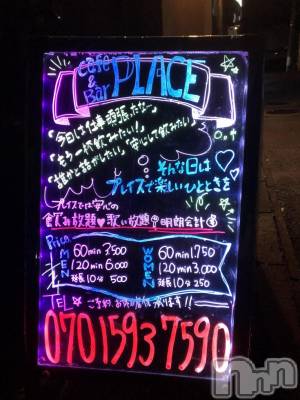 cafe & Bar PLACE
「今日は仕事頑張ったなー」
「もう一杯飲みたい!」
「誰かと話がしたい」「安心して飲みたい」
そんな日は♡
プレイスで楽しいひとときを
プレイスでは安心の
飲み放題♥歌い放題 明朗会計
Price
MEN
60min 3,500
120min 6,000
延長10分 500
WOMEN
60min 1,750
120min 3,000
延長10分 250
TEL ☆ ご予約、お席の確保承ります!!
07015937590